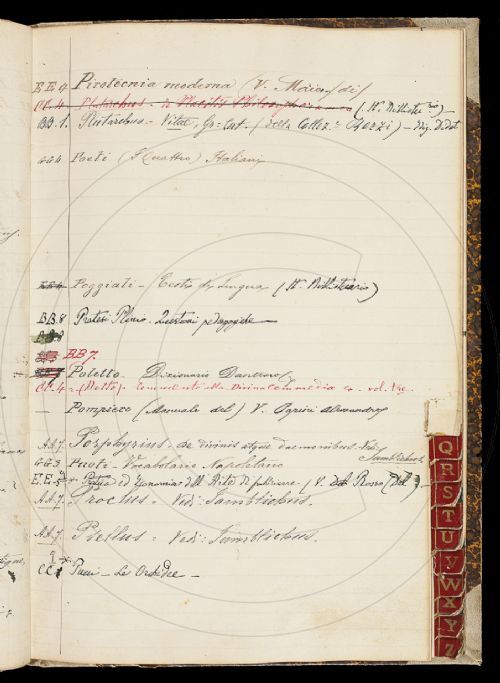 E.E.4 Pirotecnia moderna V. Maia (di)
CC.4 Plutarchus - de Placitis Philosophorum
BB.1. Plutarchus - Vitae, Gr=Lat. (della Collez.e) - Didot
GG4 Poeti (I Quattro) Italiani
Poggiali - Testi di Lingua
BB.8 Pratesi Plinio - Questioni pedagogiche
BB7.
Poletto - Dizionario Dantesco
CC.4 - (Detto) - Commento alla Divina Commedia - vol. tre.
— Pompiere (Manuale del) V. Papini Alessandro
AA.7. Porphyrius - de divinis atque daemonibus - Vedi: Jamblichus
GG3 Puoti - Vocabolario Napoletano
E.E.5 ed Economia dell'Arte di fabbricare (V. Del Rosso (Del)
AA.7. Proclus - Vedi: Jamblichus.
AA.7. Psellus - Vedi: Jamblichus.
CC1 Pucci - Le
Q
R
S
T
U
V
W
X
Y
Z